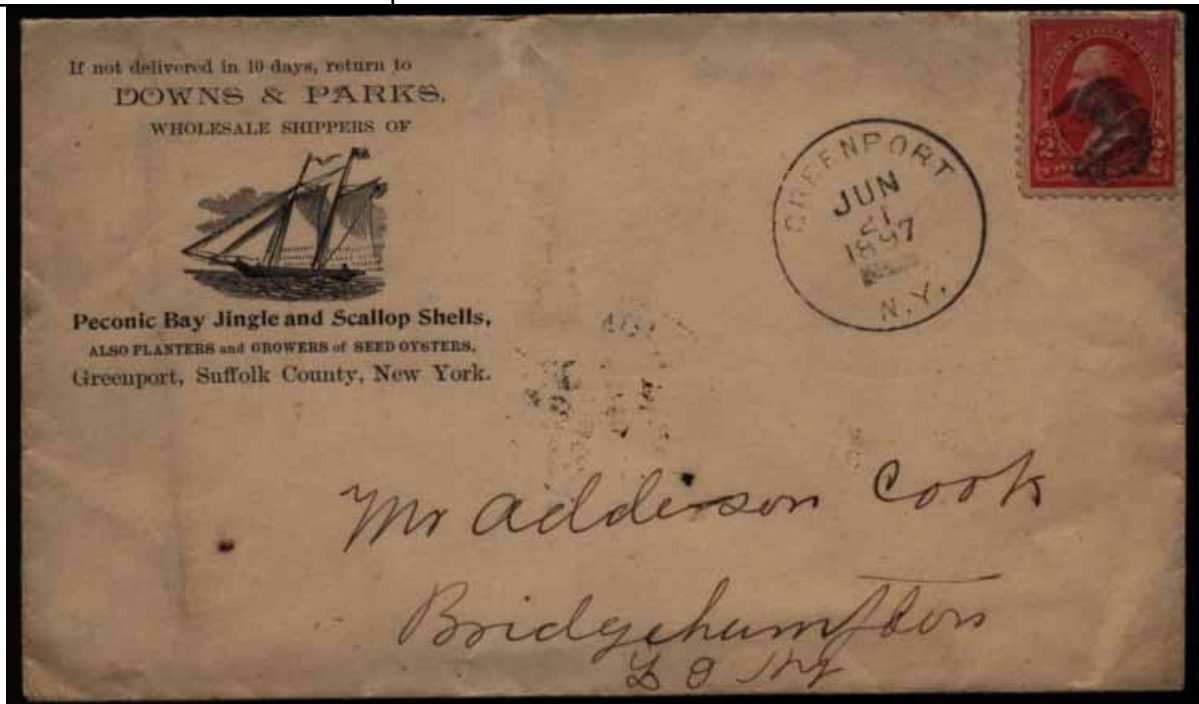 If not delivered in 10 days, return to
DOWNS & PARKS,
WHOLESALE SHIPPERS OF
Peconic Bay Jingle and Scallop Shells,
ALSO PLANTERS and GROWERS of SEED OYSTERS,
Greenport, Suffolk County, New York.
GREENPORT
JUN
21
1897
N.Y.
2 2
Mr Addison Cook
Bridgehampton
L I NY